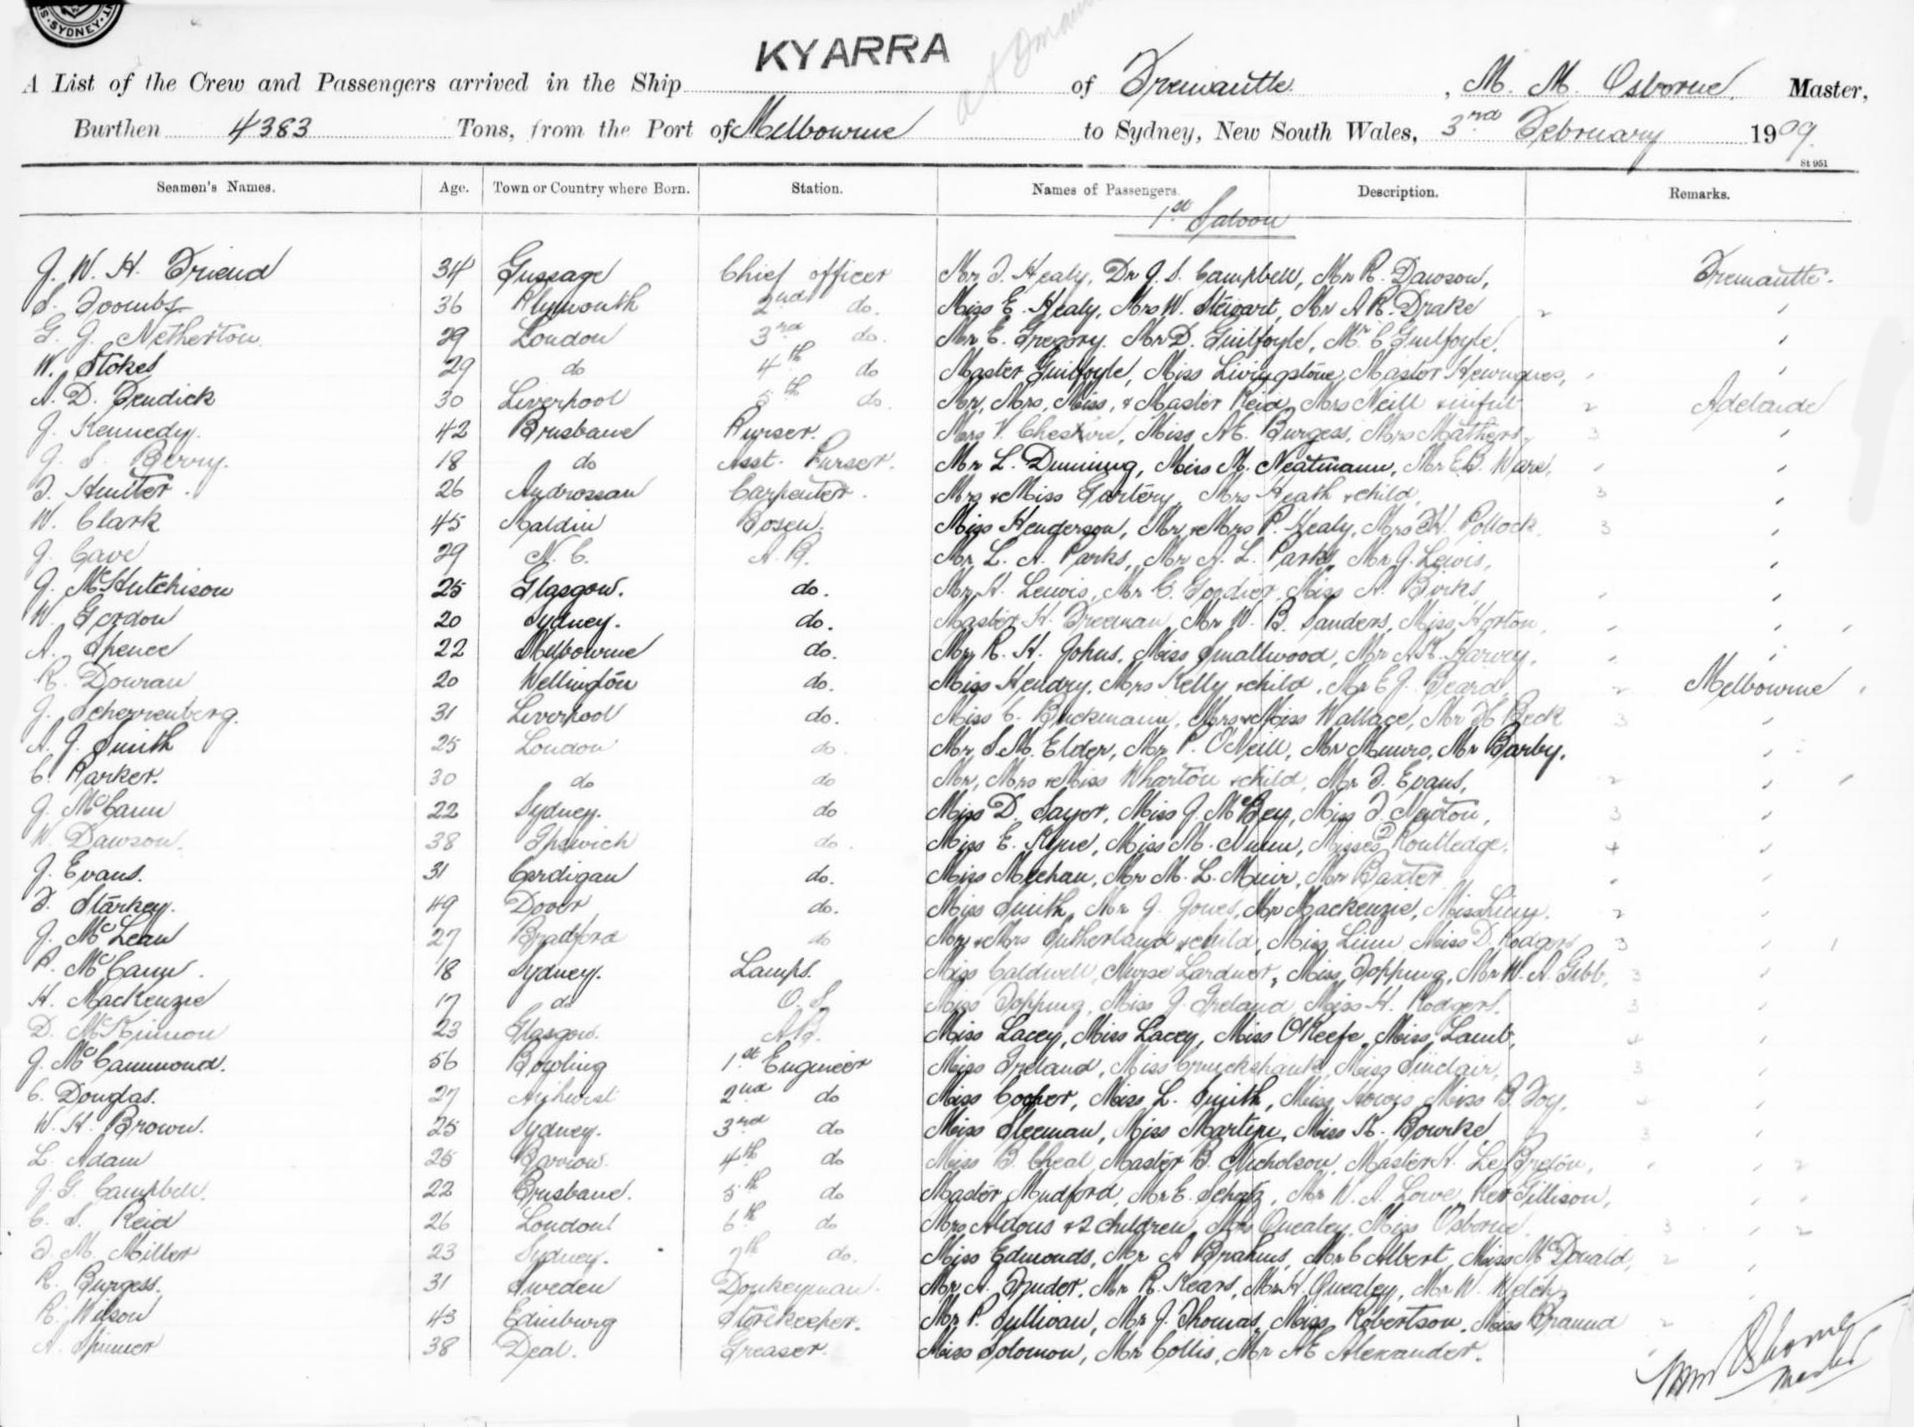 SYDNEY
KYARRA
A List of the Crew and Passengers arrived in the Ship of Fremantle, M. M. Osborne, Master,
Burthen 4383 Tons, from the Port of Melbourne to Sydney, New South Wales, 3rd February 1909.
St 951
Seamen's Names. Age. Town or Country where Born. Station. Names of Passengers. Description. Remarks.
1st Saloon
J. W. H. Friend 34 Gussage Chief officer Mr J. Healy, Dr J. S. Campbell, Mr R. Dawson, Fremantle.
S. Toombs 36 Plymouth 2nd do. Miss E. Healy, Mrs W. Stewart, Mr A R. Drake
G. J. Netherton 29 London 3rd do. Mr E. Gregory. Mr D. Guilfoyle, Mr C Guilfoyle,
W. Stokes 29 do 4th do Master Guilfoyle, Miss Livingstone, Master Henriques,
A. D. Fendick 30 Liverpool 5th do. Mr, Mrs, Miss, & Master Reid, Mrs Neill & infnt 2 Adelaide
J. Kennedy. 42 Brisbane Purser. Mrs V. Cheshire, Miss A E. Burgess, Mrs Mathers, 3
J. S. Berry. 18 do Asst. Purser. Mr L. Dunning, Miss M. Neatmann, Mr E B. Ware,
J. Hunter. 26 Androssan Carpenter. Mrs & Miss Gartery, Mrs Heath & child, 3
W. Clark 45 Maldin Bosen. Miss Henderson, Mr & Mrs P. Healy, Mrs H. Pollock. 3
J. Cave 29 N. C. A. B. Mr L. A. Parks, Mr A. L. Parks, Mr J. Lewis,
J. McHutchison 25 Glasgow. do. Mr H. Lewis, Mr C. Gordier, Miss A. Birks
W. Gordon 20 Sydney. do. Master H. Freeman, Mr W. B. Sanders, Miss Horton,
A. Spence 22 Melbourne do. Mr R. H. Johns, Miss Smallwood, Mr A H. Harvey,
R. Dowran 20 Wellington do. Miss Hendry, Mrs Kelly & child, Mr E J. Beard, 2 Melbourne
J. Scherrenberg. 31 Liverpool do. Miss C. Buckmann, Mrs & Miss Wallace, Mr H Beck 3
A. J. Smith 25 London do. Mr S. M. Elder, Mr P. O'Neill, Mr Munro, Mr Barby,
C. Parker. 30 do do Mr, Mrs & Miss Wharton & child, Mr J. Evans, 2
J. McCann 22 Sydney. do Miss D. Sayer, Miss J. McBey, Miss J. Newton, 3
W. Dawson. 38 Ipswich do. Miss E. Kyne, Miss M. Nunn, Misses (2) Routledge, 4
J. Evans. 31 Cardigan do. Miss Meehan, Mr M. L. Muir, Mr Baxter
J. Starkey. 49 Dover do. Miss Smith, Mr J. Jones, Mr Mackenzie, Miss 2
J. McLean 27 Bradford do Mr & Mrs Sutherland & child, Miss Linn Miss D Rodgers 3
P. McCann. 18 Sydney. Lamps. Miss Caldwell, Nurse Lardner, Miss Topping, Mr W. A. Gibb, 3
H. Mackenzie 17 do O. S. Miss Topping, Miss J. Ireland Miss H. Rodgers, 3
D. McKinnon 23 Glasgow. A.B. Miss Lacey, Miss Lacey, Miss O'Keefe, Miss Lamb, 4
J. McCammond. 56 Bowling 1st Engineer Miss Ireland, Miss Cruickshank, Miss Sinclair, 3
C. Douglas. 27 Amherst 2nd do Miss Cooper, Miss L. Smith, Miss Howis Miss B Foy,
W. H. Brown. 25 Sydney. 3rd do Miss Sleeman, Miss Martin, Miss K. Bourke, 3
L. Adam 25 Barrow. 4th do Miss B. Cheal Master B. Nicholson, Master H. Le Breton,
J. G. Campbell. 22 Brisbane. 5th do Master Mudford, Mr E. Schatz, Mr W. A. Lowe, Rev Tillison,
C. S. Reid 26 London 6th do Mrs Aldous & 2 children, Mrs Quealey, Miss Osborne 3
J. M. Miller 23 Sydney. 7th do. Miss Edmonds, Mr A Brahms, Mr C Albert, Miss McDonald, 2
R. Burgess. 31 Sweden Donkeyman. Mr A. Tuder, Mr R. Kears, Mr H. Quealey, Mr W. Welch,
R. Wilson 43 Edinburg Storekeeper. Mr P. Sullivan, Mr J. Thomas, Miss Robertson, Miss Braund 2
A. Spinner 38 Deal. Greaser. Miss Solomon, Mr Collis, Mr A E Alexander.
Osborne
Master